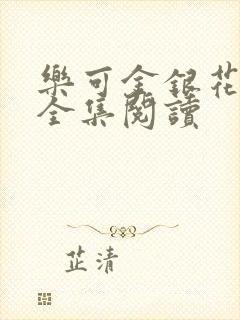 樂可金銀花
全集閱讀
芷清